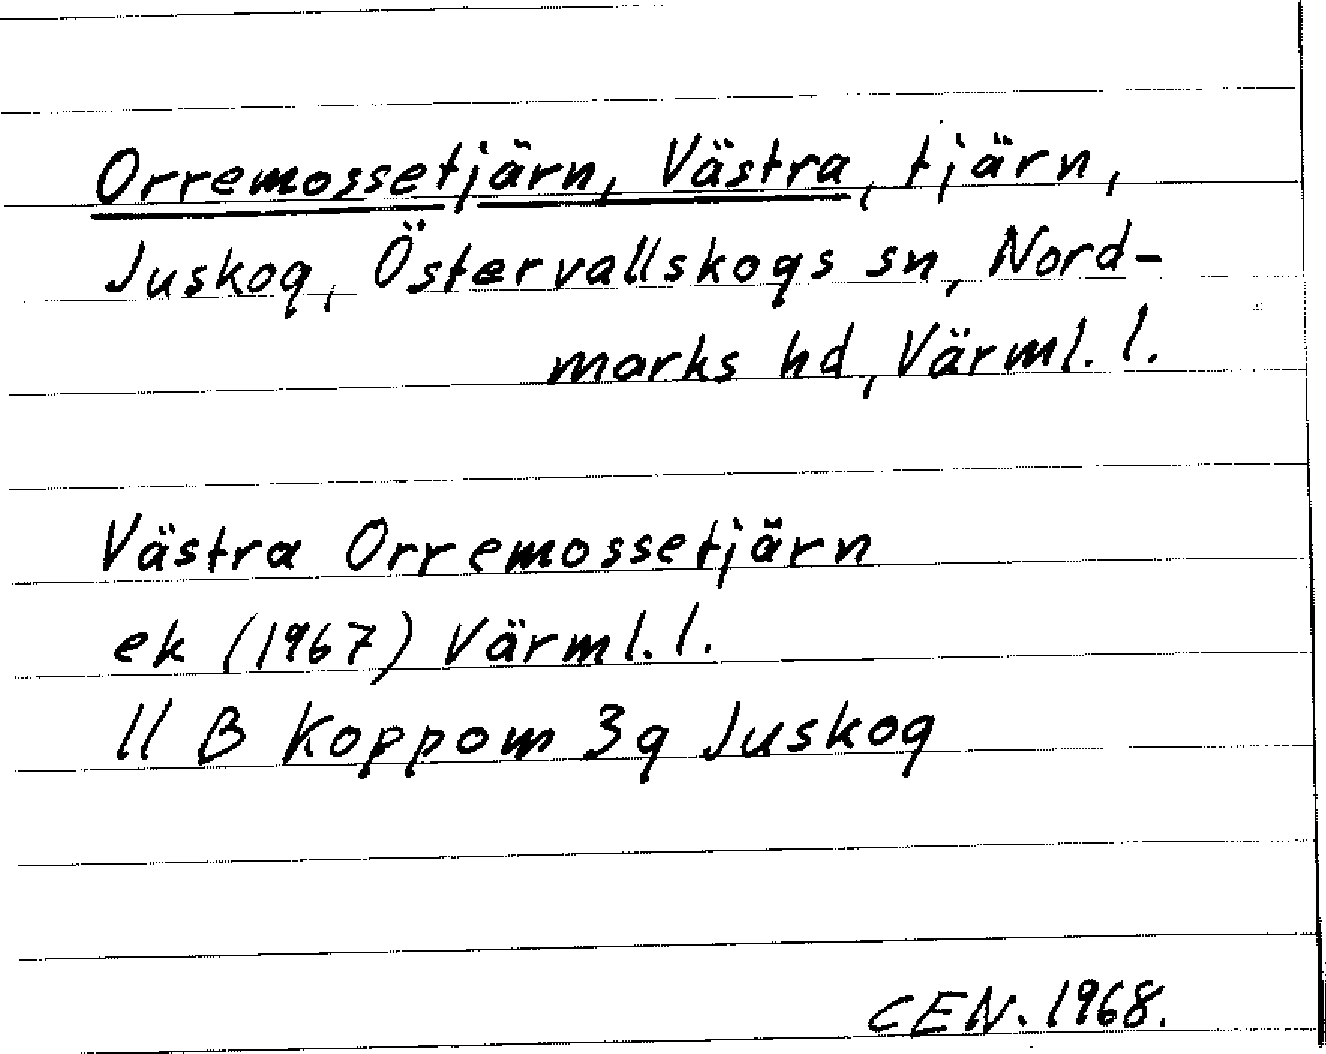 Orremossetjärn, Västra, tjärn,
Juskog, Östervallskogs sn, Nord-
marks hd, Värml. l.
Västra Orremossetjärn
ek (1967) Värml. l.
11 B Koppom 3g Juskog
CEN. 1968.